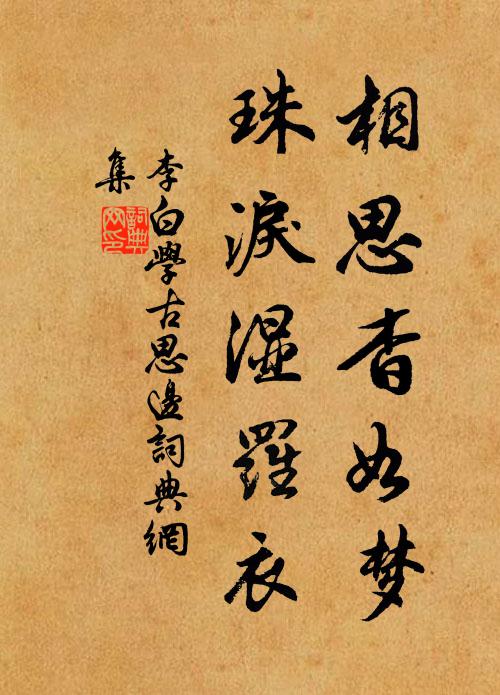 相思杳如梦
珠淚湿羅衣
李白學古思邊詞典網
集
詞典
网印